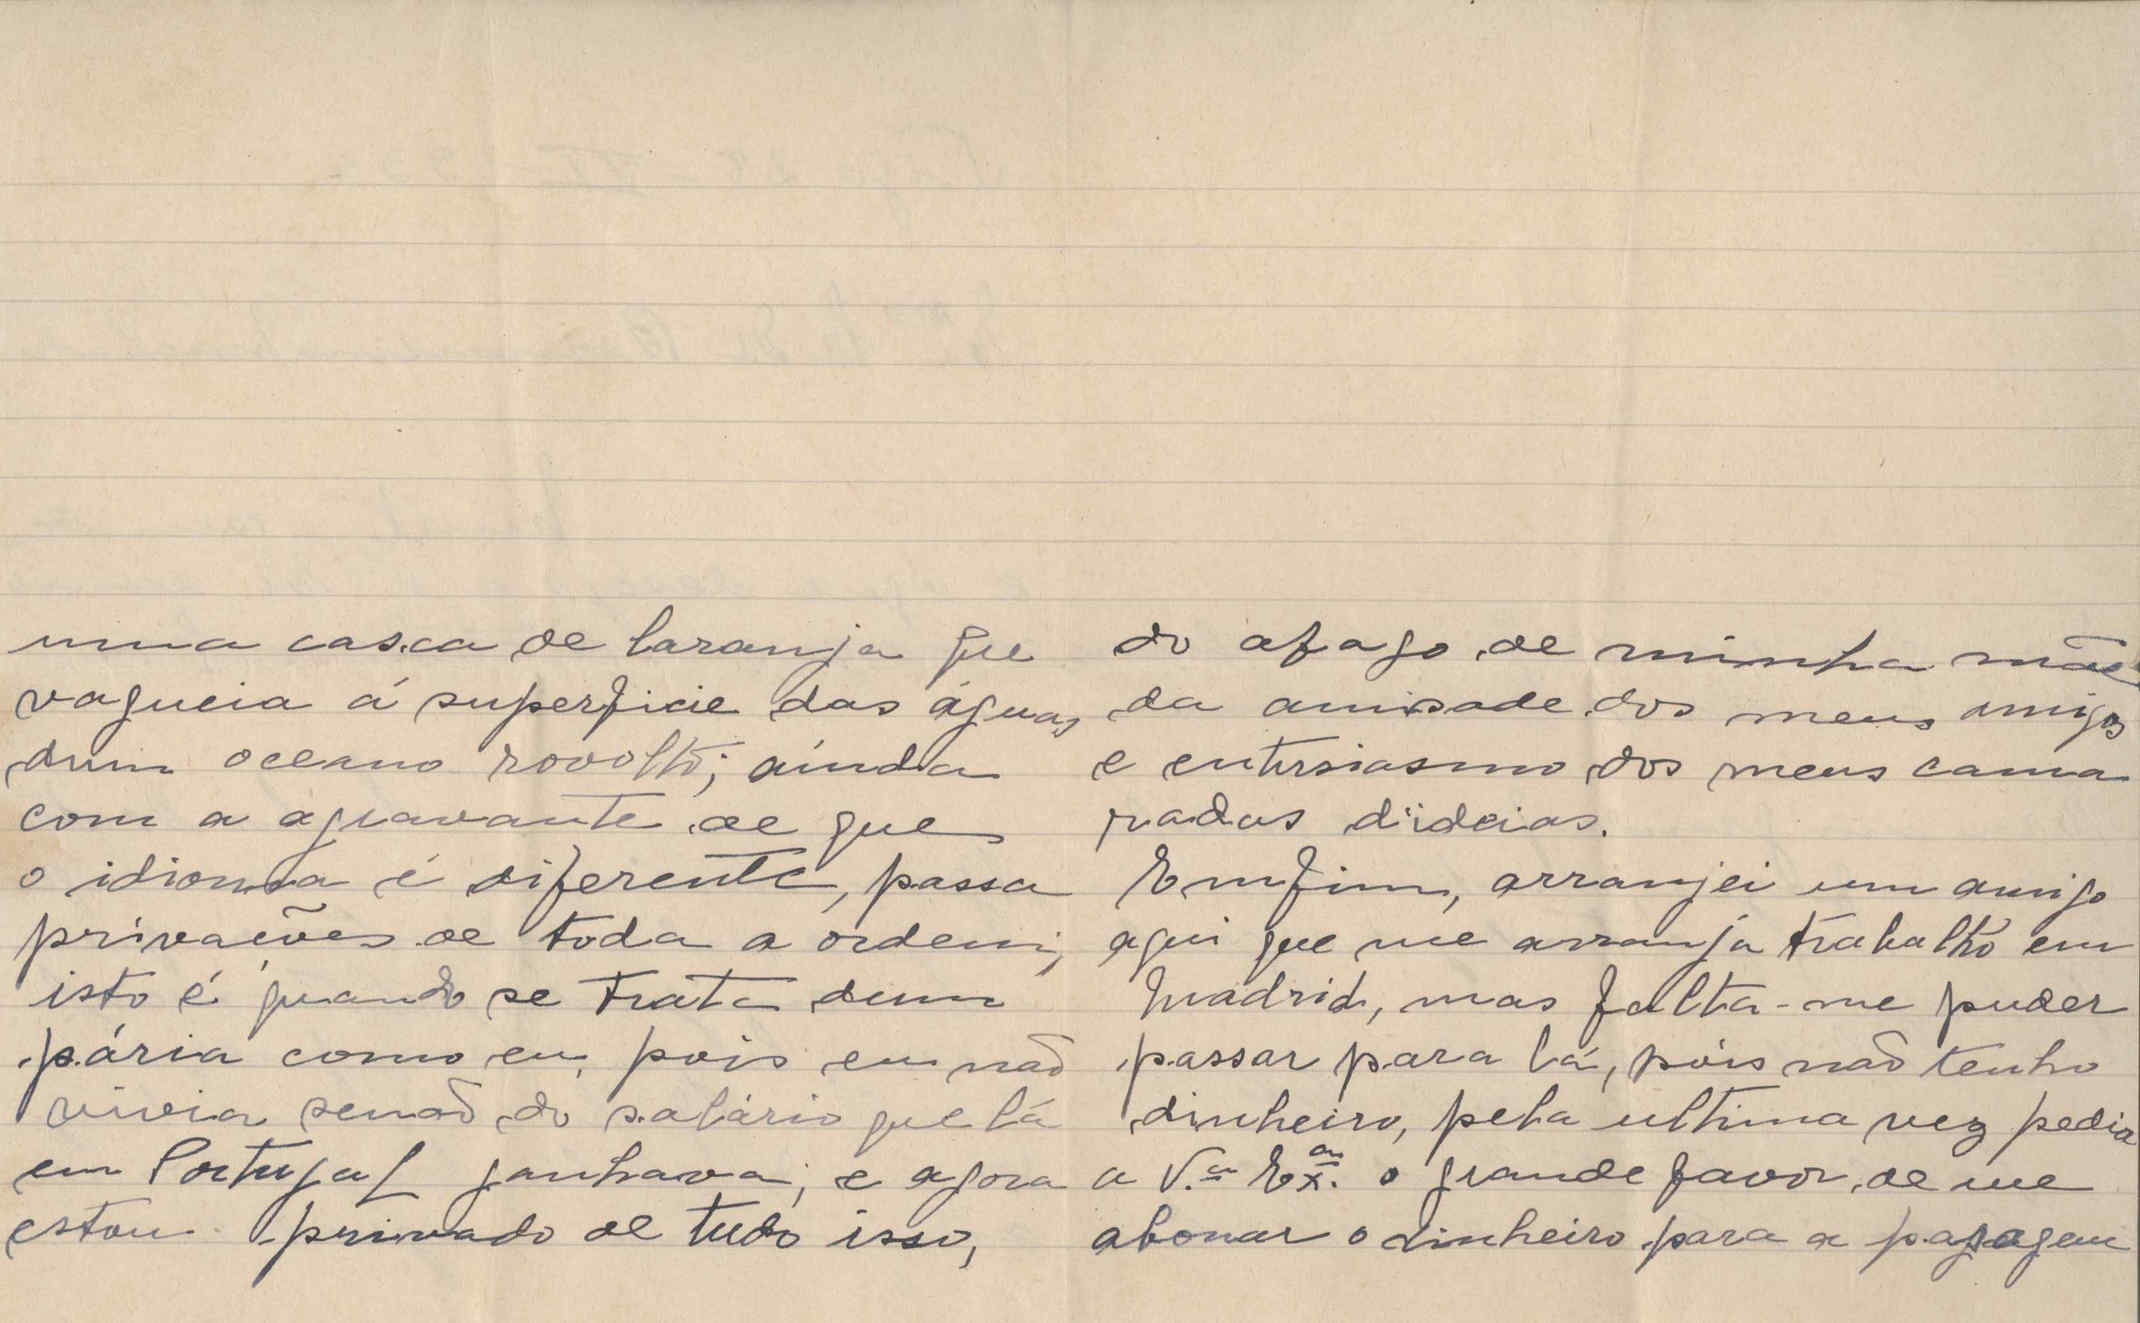 uma casca de laranja que
vagueia á superficie das águas
dum oceano rovolto; aínda
com a agravante de que
o idioma é diferente, passa
privações de toda a ordem;
isto é quando se trata dum
pária como eu, pois eu não
vivia senão do salário que lá
em Portugal ganhava; e agora
estou privado de tudo isso,
do afago de minha mãe
da amisade dos meus amigos
e entusiasmo dos meus cama
radas d'ideias.
Emfim, arranjei um amigo
aqui que me arranja trabalho em
Madrid, mas falta-me puder
passar para lá, pois não tenho
dinheiro, pela ultima vez pedia
a V.ª Ex.ª o grande favor de me
abonar o dinheiro para a pasagem